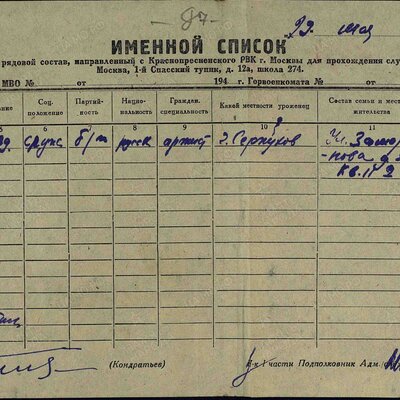 29. мая
ИМЕННОЙ СПИСОК
рядовой состав, направленный с Краснопресненского РВК г. Москвы для прохождения слу
Москва, 1-й Спасский тупик, д. 12а, школа 274.
МВО № от 194 г. Горвоенкомата № от
ание Соц. положение Партийность Национальность Граждан. специальность Какой местности уроженец Состав семьи и место жительства
6 7 8 9 10 11
служ б/п русск артист г. Серпухов
нова д.
кв. 11
(Кондратьев) части Подполковник Адм.